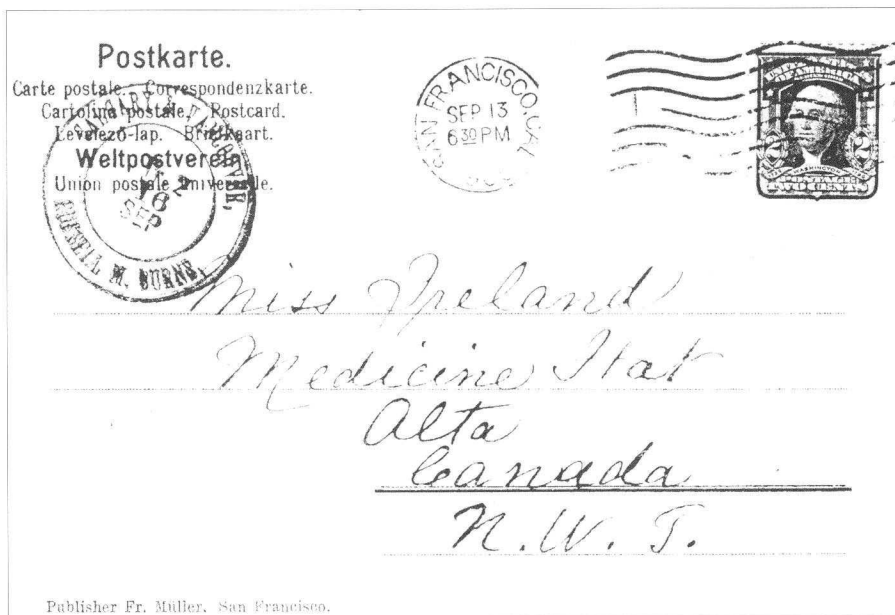 Postkarte.
Carte postale. Correspondenzkarte.
Cartolina postale. Postcard.
Levelező-lap. Briefkaart.
Weltpostverein
Union postale universelle.
CALGARY & VANCOUVER,
16
SEP
M. BURNS,
SAN FRANCISCO, CAL
SEP 13
6 30 PM
2 WASHINGTON 2
Miss Ireland
Medicine Hat
Alta
Canada
N. W. T.
Publisher Fr. Müller, San Francisco.